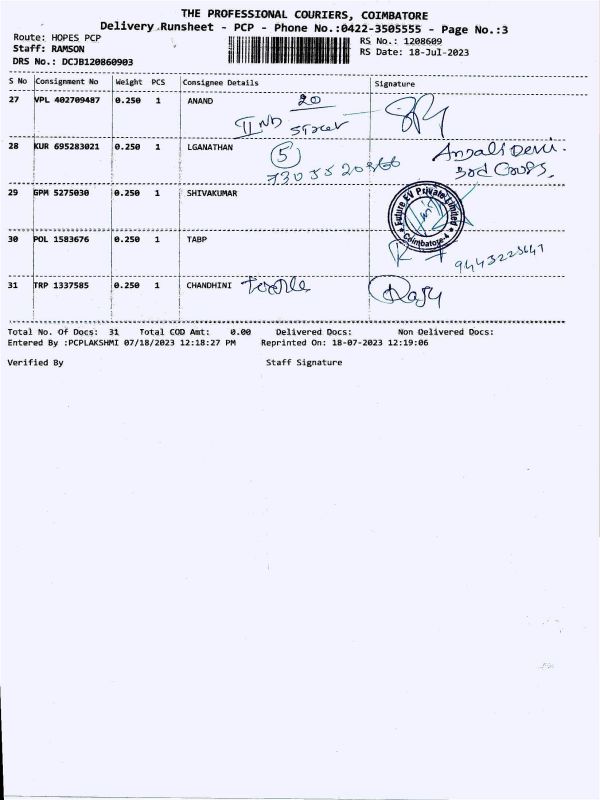 THE PROFESSIONAL COURIERS, COIMBATORE
Delivery Runsheet - PCP - Phone No.:0422-3505555 - Page No.:3
Route: HOPES PCP
RS No.: 1208609
Staff: RAMSON
RS Date: 18-Jul-2023
DRS No.: DCJB120860903
S No Consignment No Weight PCS Consignee Details Signature
27 VPL 402709487 0.250 1 ANAND 20
IInd street
28 KUR 695283021 0.250 1 LGANATHAN 5 Anjali Devi.
3rd Cross,
29 GPM 5275030 0.250 1 SHIVAKUMAR
Future EV Private Limited
* Coimbatore-4 *
30 POL 1583676 0.250 1 TABP
31 TRP 1337585 0.250 1 CHANDHINI Raju
Total No. Of Docs: 31 Total COD Amt: 0.00 Delivered Docs: Non Delivered Docs:
Entered By :PCPLAKSHMI 07/18/2023 12:18:27 PM Reprinted On: 18-07-2023 12:19:06
Verified By Staff Signature